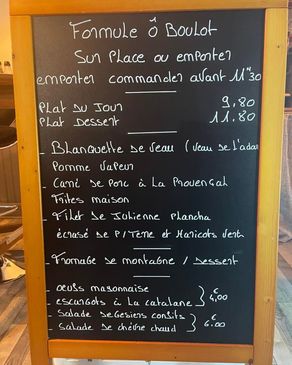 Formule ô Boulot
Sur Place ou emporter
emporter commander avant 11"30
Plat du Jour 9,80
Plat Dessert 11.80
- Blanquette de veau (veau de l'adar
Pomme vapeur
- Carré de Porc à la Provençal
Frites maison
- Filet de Julienne Plancha
écrasé de P/Terre et Haricots Verts
- Fromage de montagne / Dessert
- oeufs mayonnaise
- escargots à la catalane } € 4,00
- Salade de Gesiers confits
- Salade de chèvre chaud } € 6.00